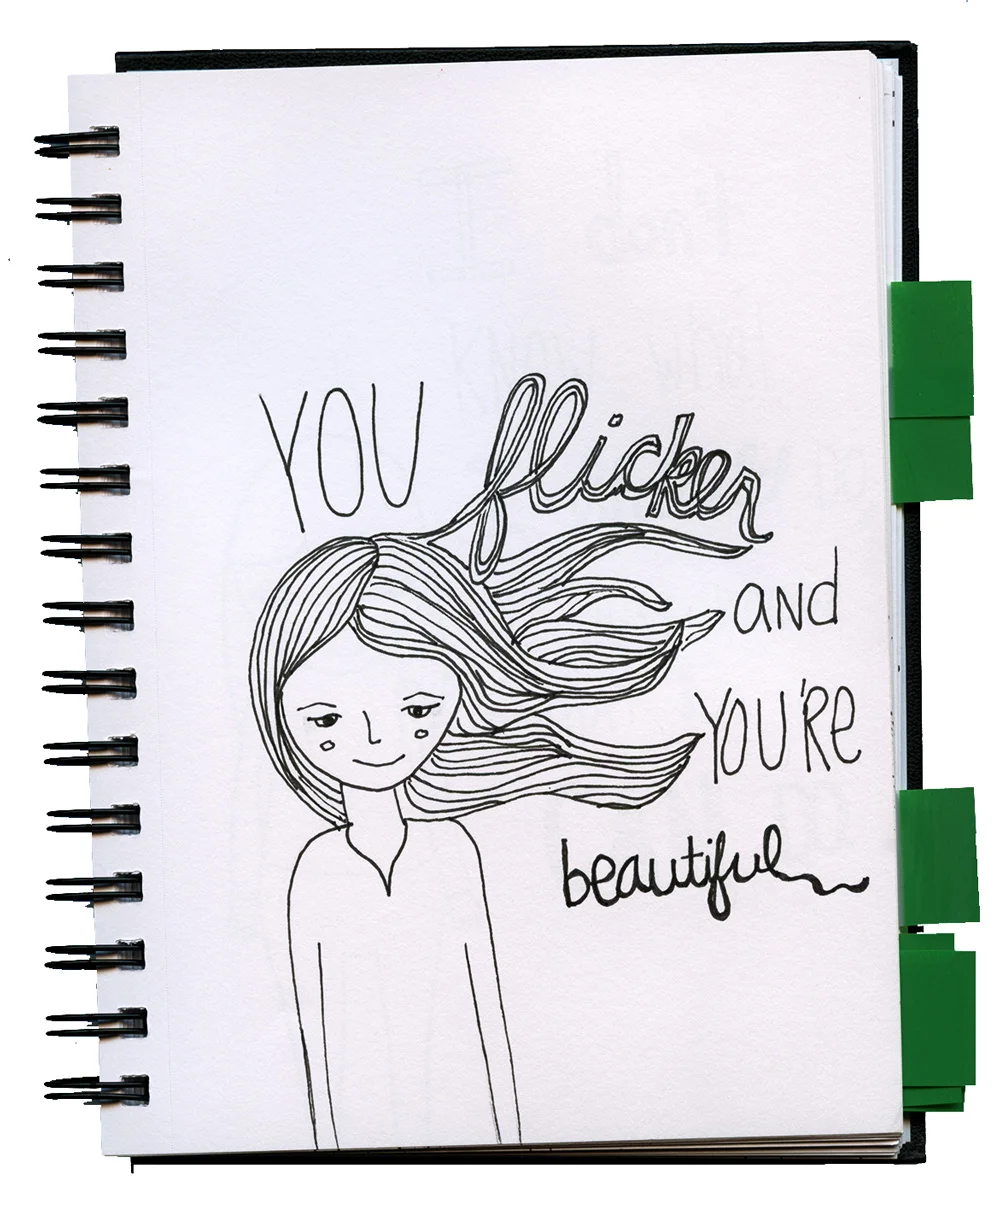 YOU flicker
AND
YOU'RE
beautiful